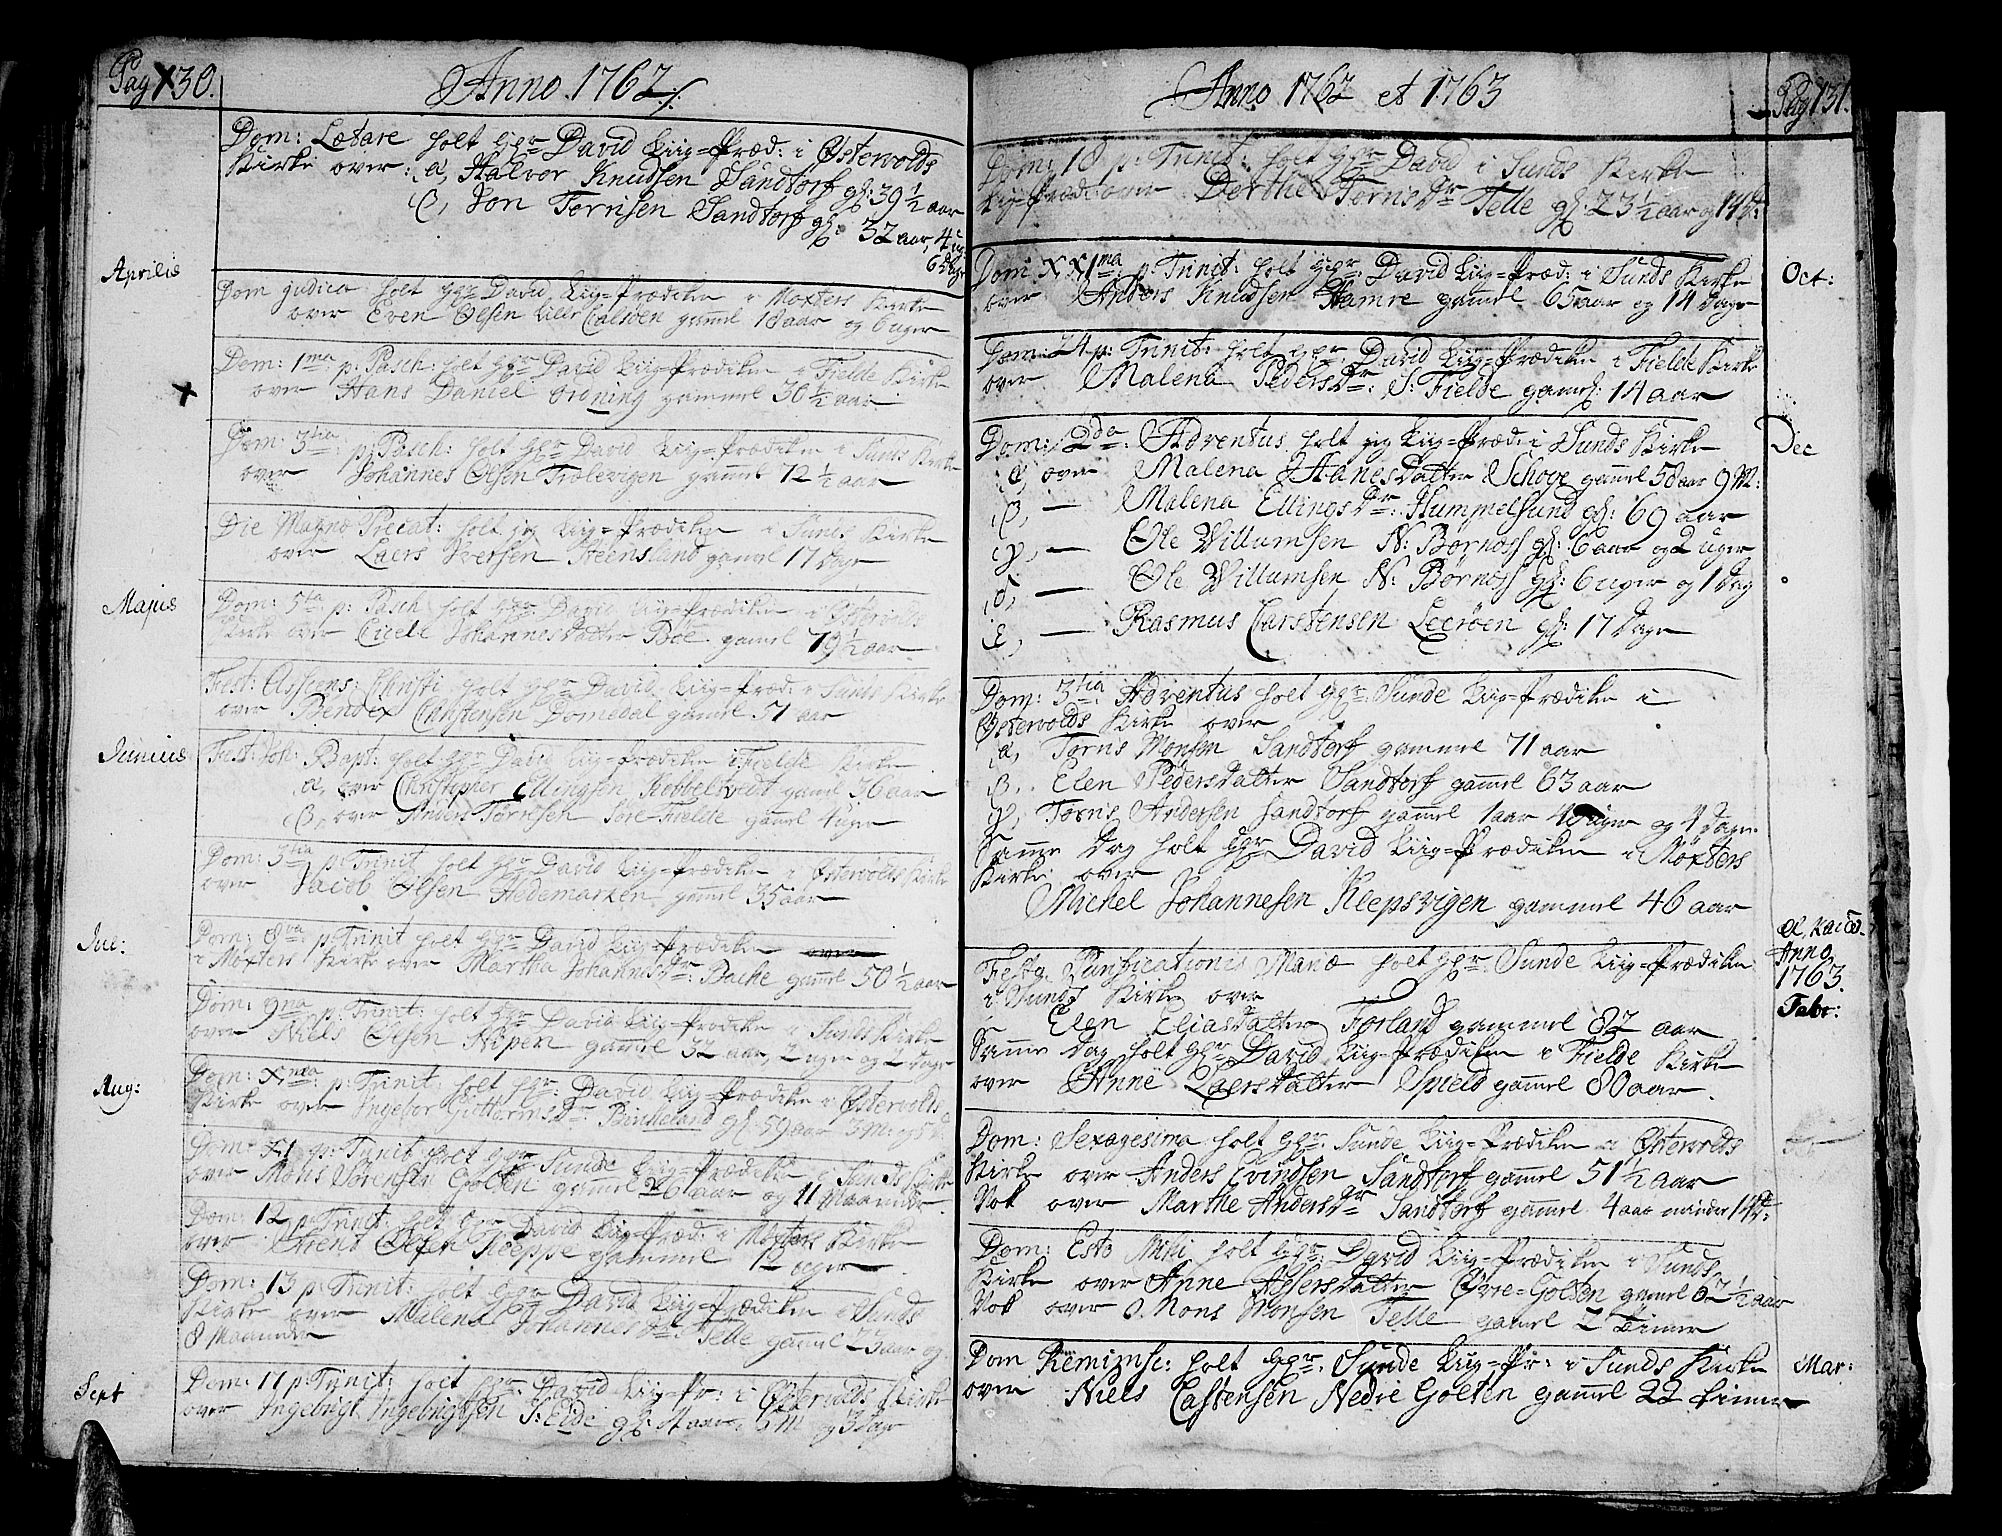 Pag 130.
Anno 1762
Dom: Lætare holt hgr David Liig-Præd: i Østervolds
Kirke over: a, Halvor Knudsen Sandtorf gl: 39 1/2 aar
β, Jon Tornisen Sandtorf gl: 32 aar, 4 u
6 Dage
Aprilis
Dom Judica holt hgr David Liig-Prædiken i Møxters Kirke
over Even Olsen Lille Calsøen gammel 18 aar og 6 uger
Dom: 1ma p: Pasch: holt hgr David Liig-Prædiken i Fielde Kirke
over Hans Daniel gammel 30 1/2 aar
Dom: 3tia p: Pasch: holt hgr David Liig-Prædiken i Sunds Kirke
over Johannes Olsen Trælevigen gammel 72 1/2 aar
Die Magno Precat: holt jeg Liig-Prædiken i Sunds Kirke
over Laers Iversen Steensland gammel 17 Dage
Majus
Dom: 5ta p: Pasch holt hgr David Liig-Prædiken i Østervolds
Kirke over Cicele Johannesdatter Bøe gammel 79 1/2 aar
Fest: Ascens: Christi holt hgr David Liig-Præd: i Sunds Kirke
over Bendex Christensen Domedal gammel 51 aar
Junius
Fest: Joh: Bapt: holt hgr David Liig-Prædiken i Fielde Kirke
a, over Christopher Ellingsen Kobbeltvedt gammel 56 aar
β, over Anders Tørrisen Søre-Fielde gammel 4 uger
Dom: 3tia p: Trinit holt hgr David Liig-Prædiken i Østervolds Kirke
over Jacob Olsen Hedemarken gammel 35 aar
Jul:
Dom: 8va p: Trinit holt hgr David Liig-Prædiken over
i Møxters Kirke over Martha Johannesdr: Bache gammel 50 1/2 aar
Dom: 9na p: Trinit: holt hgr David Liig-Prædiken i Sunds Kirke
over Niels Olsen Nipen gammel 32 aar, 2 uger og 2 Dage
Aug:
Dom: Xma: p: Trinit: holt hgr David Liig-Prædiken i Østervolds
Kirke over Ingebor Guttormsdr: Birkeland gl: 59 aar 3 M: og 5 D:
Dom: XI p: Trinit: holt hgr Sunde Liig-Prædiken i Sunds Kirke
over Mons Sørensen Golten gammel 26 aar og 11 Maaneder
Dom: 12 p: Trinit: holt hgr David Liig-Præd: i Møxters Kirke
over Arent Olsen Kleppe gammel 12 uger
Dom: 13 p: Trinit: holt hgr David Liig-Prædiken i Sunds
Kirke over Malena Johannesdr: Telle gammel 23 aar og
8 Maaneder
Sept
Dom: 17 p: Trinit: holt hgr: David Liig-Pr: i Østervolds Kirke
over Ingebrigt Ingebrigtsen S: Eide gl: 11 aar, 6 M og 3 Dage
Anno 1762 et 1763
Pag 131.
Dom: 18 p: Trinit: holt hgr David i Sunds Kirke
Liig-Præd: over Dorthe Tørnisdr Telle gl: 23 1/2 aar og 14 D:
Oct:
Dom: XX1ma: p: Trinit: holt hgr: David Liig-Præd: i Sunds Kirke
over Anders Knudsen Hamre gammel 65 aar og 14 Dage
Dom: 24 p: Trinit: holt hgr David Liig-Prædiken i Fielde Kirke
over Malena Pedersdr: S: Fielde gammel: 14 aar
Dec
Dom: 2da: Adventus holt jeg Liig-Præd: i Sunds Kirke
a, over Malena Hanesdatter Schoge gammel 58 aar 9 M:
β, — Malena Ellingsdr: Hummelsund gl: 69 aar
γ, — Ole Willumsen N: Børnøss gl: 6 aar og 2 uger
δ, — Ole Willumsen N: Børnøss gl: 6 uger og 1 Dag
ε, — Rasmus Carstensen Leerøen gl: 17 Dage
Dom: 3tia Adventus holt hgr: Sunde Liig-Prædiken i
Østervolds Kirke over
a, Tørris Monsen Sandtorf gammel 71 aar
β, Elen Pedersdatter Sandtorf gammel 63 aar
γ, Tørris Andersen Sandtorf gammel 1 aar 40 uger og 4 Dage
Samme Dag holt hgr David Liig-Prædiken i Møxters
Kirke over
Michel Johannesen Klepsvigen gammel 46 aar
Anno
1763.
Febr:
Festo Purificationis Mariæ holt hgr: Sunde Liig-Prædiken
i Sunds Kirke over
Elen Eliasdatter Forland gammel 82 aar
Samme Dag holt hgr David Liig-Prædiken i Fielde Kirke
over Anne Laersdatter Spield gammel 80 aar.
Dom: Sexagesima holt hgr: Sunde Liig-Prædiken i Østervolds
Kirke over Anders Evindsen Sandtorf gammel 51 1/2 aar
Nok over Marthe Andersdr Sandtorf gammel 4 aar minder 14 D:
Dom: Esto Mihi holt hgr: David Liig-Prædiken i Sunds
Kirke over Anne Assersdatter Øvre-Golten gammel 62 1/2 aar
Nok over Mons Monsen Telle gammel 2 timer
Mar:
Dom Reminisc: holt hgr: Sunde Liig-Pr: i Sunds Kirke
over Niels Castensen Nedre Golten gammel 22 timer